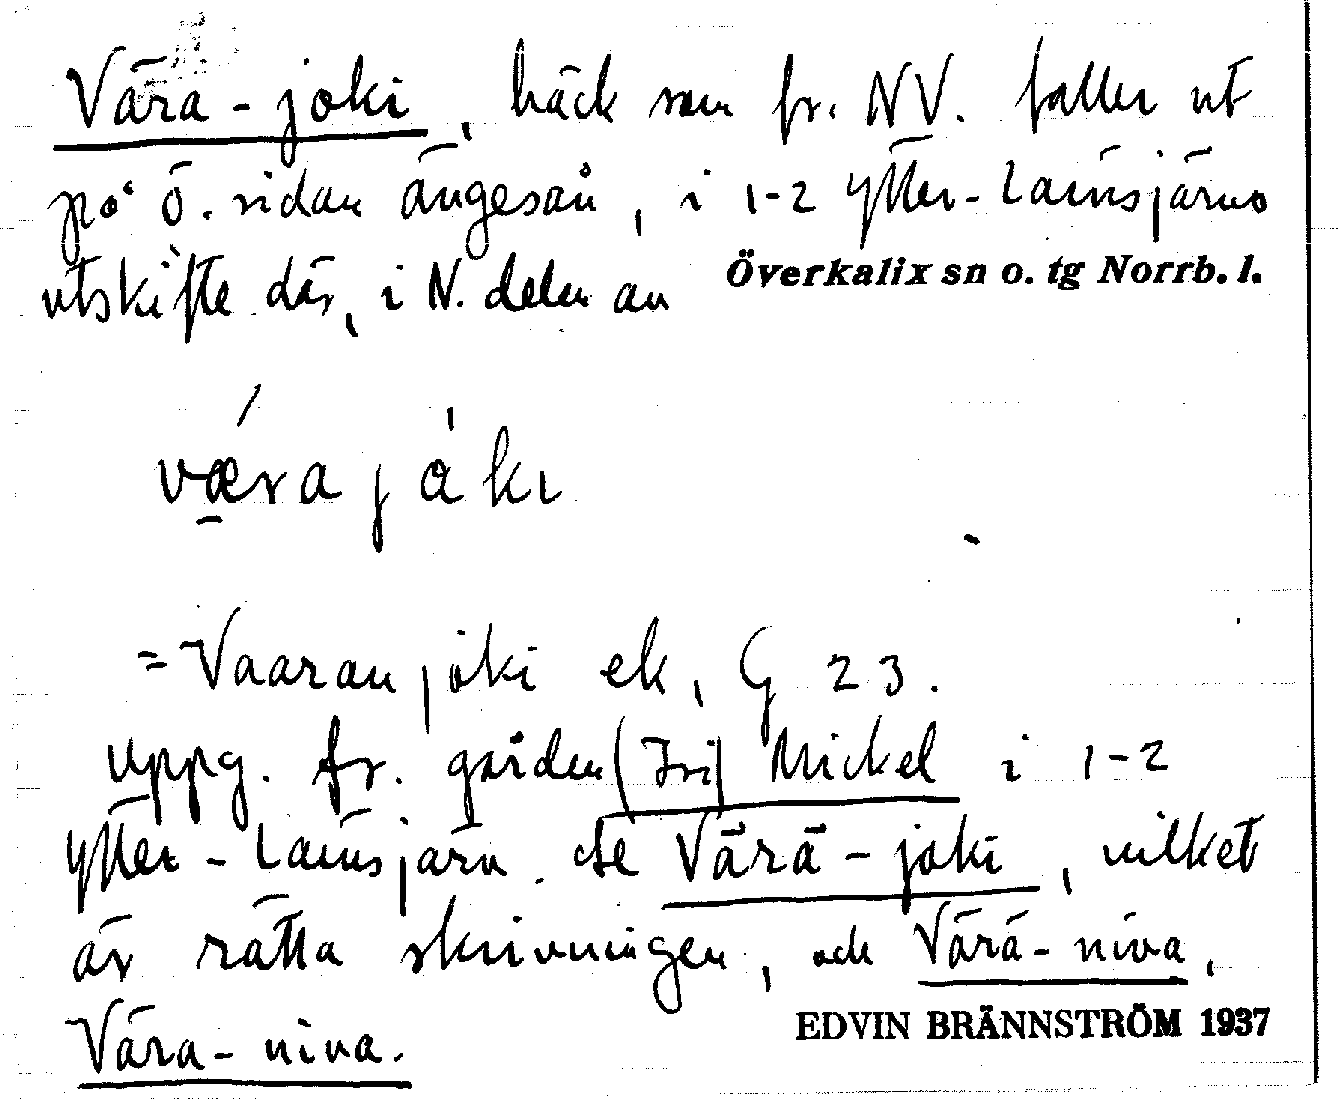 Vära-joki, bäck som fr. NV. faller ut
på ö. sidan ängesån, i 1-2 ytter-Lainsjärvs
utskifte där, i N. delen av
Överkalix sn o. tg Norrb. l.
væra jåkı
= Vaaran joki ek, G 23.
uppg. fr. gården (Iri) Mickel i 1-2
ytter-Lainsjärv. Se Värä-joki, vilket
är rätta skrivningen, och Värä-niva,
Vära-niva.
EDVIN BRÄNNSTRÖM 1937